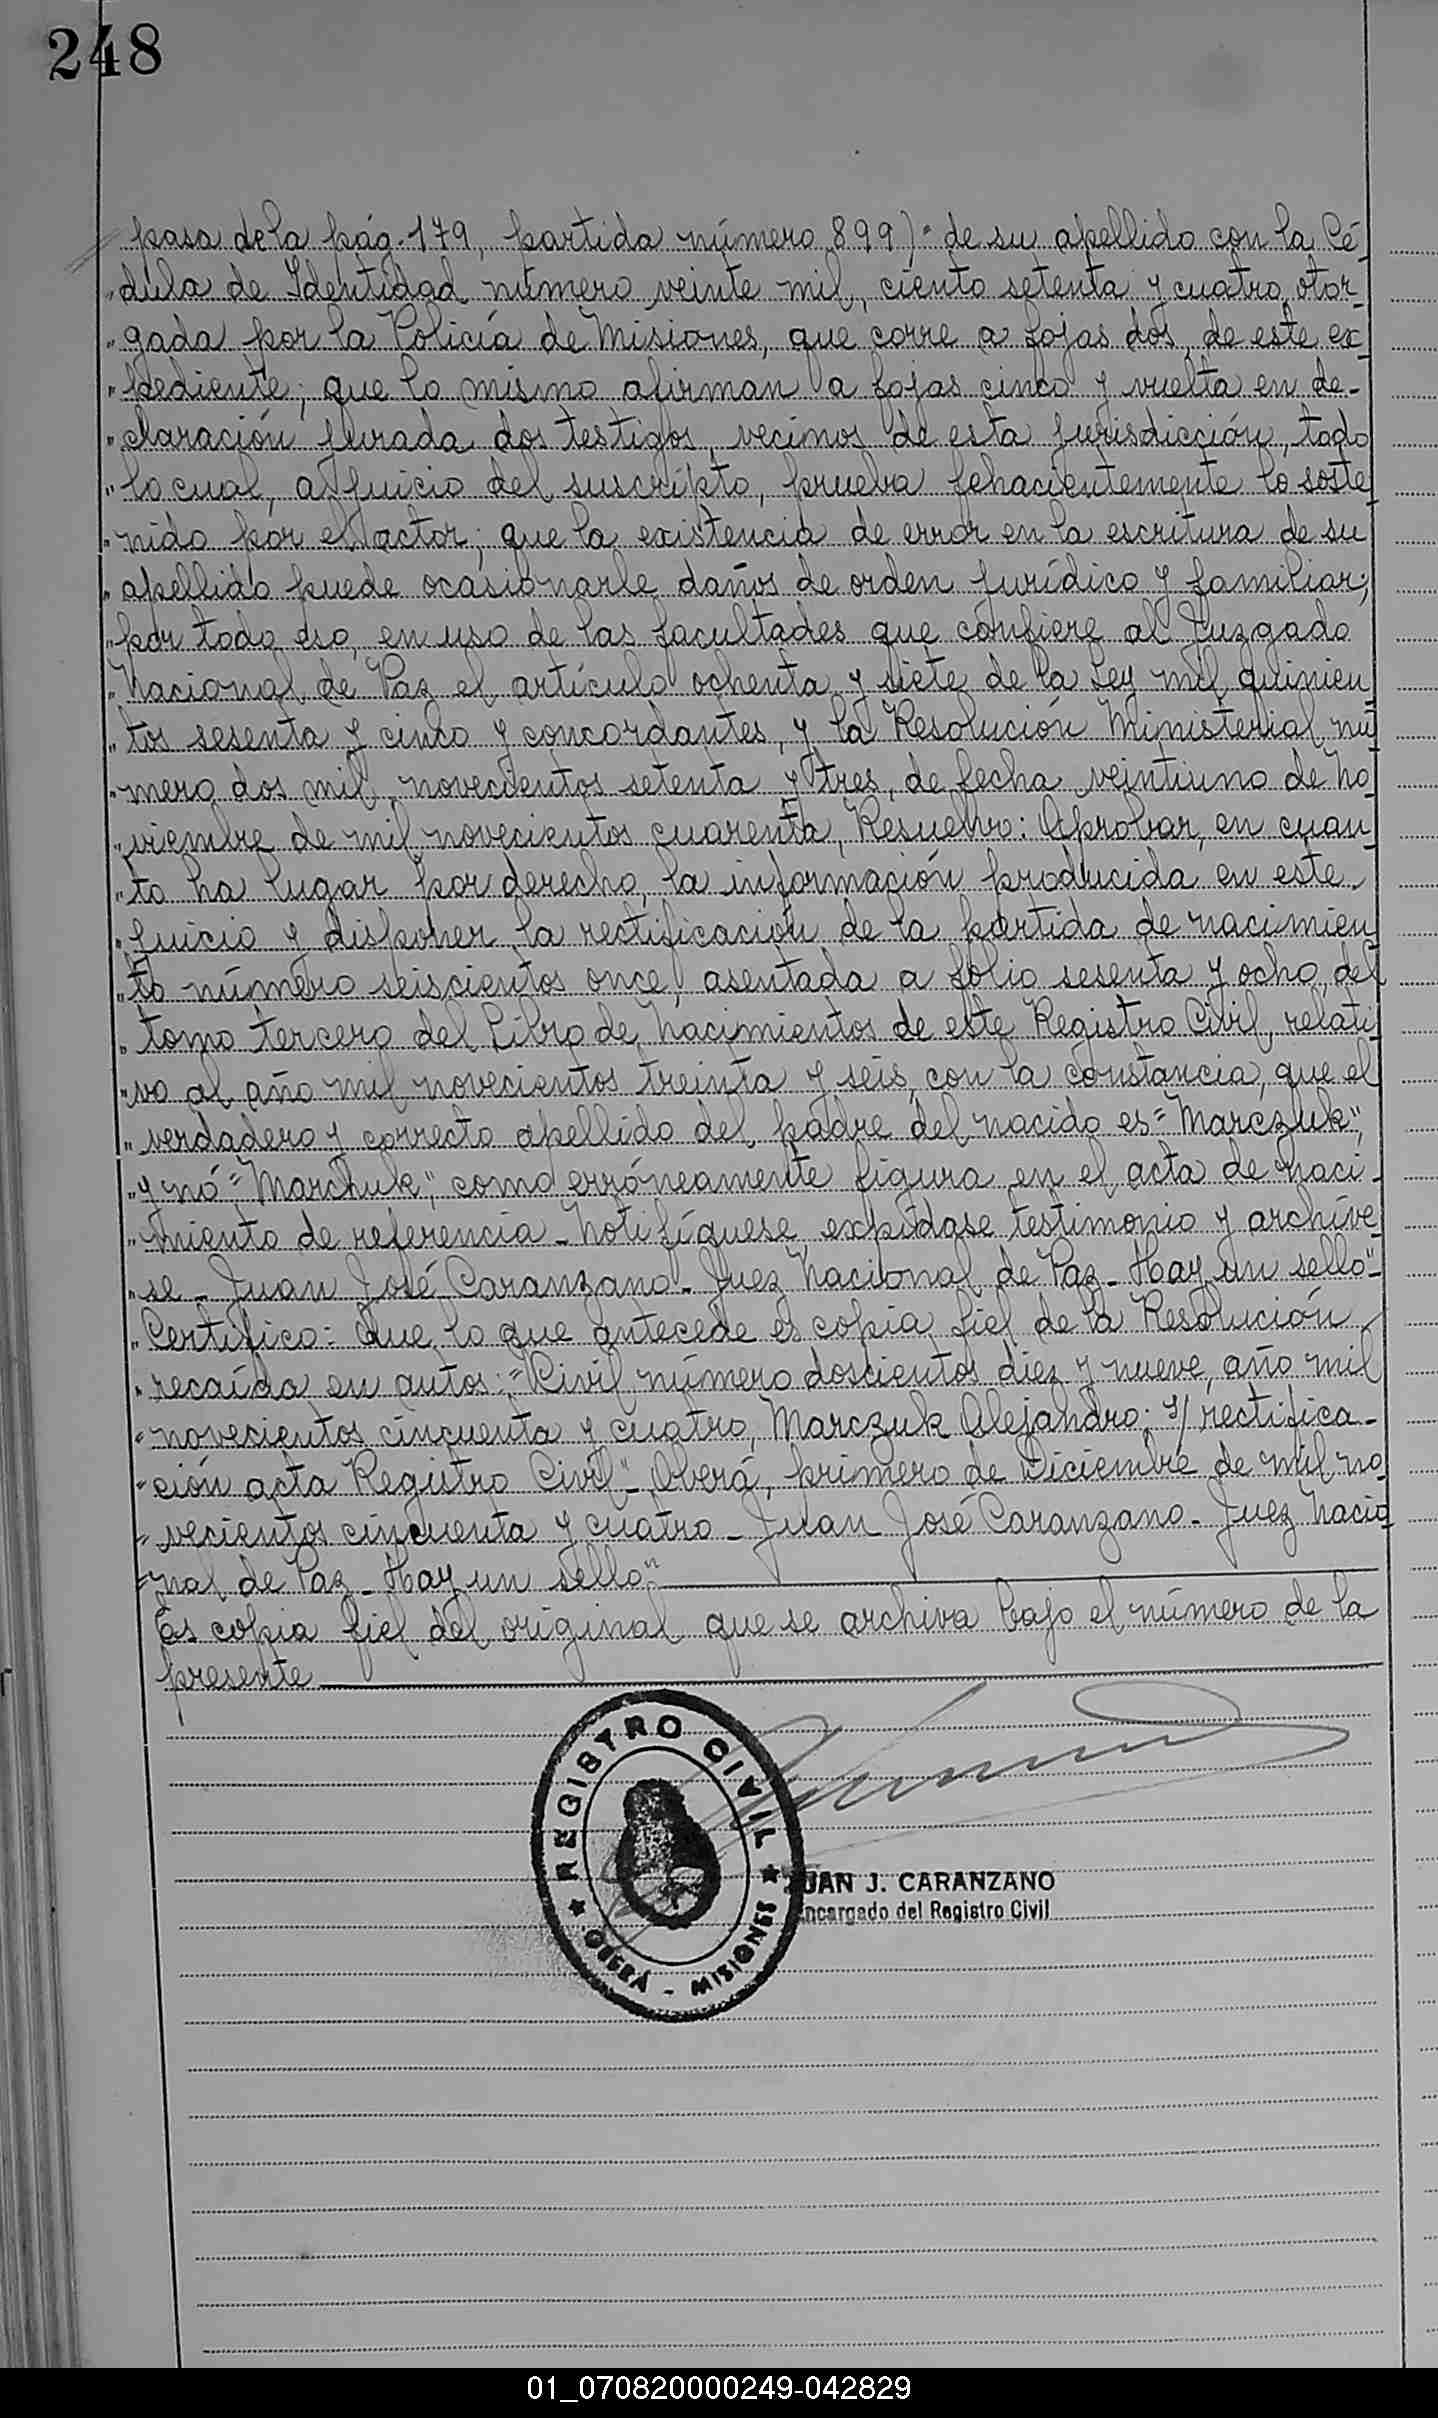 248
pasa de la pág. 179, partida número 899)" de su apellido con la Cé-
"dula de Identidad número veinte mil, ciento setenta y cuatro, otor-
"gada por la Policía de Misiones, que corre a fojas dos, de este ex-
"pediente; que lo mismo afirman a fojas cinco y vuelta en de-
"claración jurada dos testigos, vecinos de esta jurisdicción, todo
"lo cual, a juicio del suscripto, prueba fehacientemente lo soste
"nido por el actor; que la existencia de error en la escritura de su
"apellido puede ocasionarle daños de orden jurídico y familiar;
"por todo eso, en uso de las facultades que confiere al Juzgado
"Nacional de Paz el artículo ochenta y siete de la Ley mil quinien
"tos sesenta y cinco y concordantes, y la Resolución Ministerial nú
"mero dos mil novecientos setenta y tres, de fecha veintiuno de No
"viembre de mil novecientos cuarenta, Resuelvo: Aprobar, en cuan
"to ha lugar por derecho, la información producida en este
"juicio y disponer la rectificación de la partida de nacimien
"to número seiscientos once, asentada a folio sesenta y ocho, del
"tomo tercero del Libro de Nacimientos de este Registro Civil, relati
"vo al año mil novecientos treinta y seis, con la constancia, que el
"verdadero y correcto apellido del padre del nacido es="Marczuk",
"y nó="Marchuk", como erróneamente figura en el acta de naci-
"miento de referencia_Notifíquese, expídase testimonio y archíve
"se_Juan José Caranzano_Juez Nacional de Paz_Hay un sello"_
"Certifico: Que lo que antecede es copia fiel de la Resolución
"recaída en autos:="Civil número doscientos diez y nueve, año mil
"novecientos cincuenta y cuatro, Marczuk Alejandro: s/ rectifica-
"ción acta Registro Civil"_Oberá, primero de Diciembre de mil no
"vecientos cincuenta y cuatro_Juan José Caranzano_Juez Nacio
"nal de Paz_Hay un sello"
Es copia fiel del original que se archiva bajo el número de la
presente
REGISTRO CIVIL
OBERÁ - MISIONES
JUAN J. CARANZANO
Encargado del Registro Civil
01_070820000249-042829